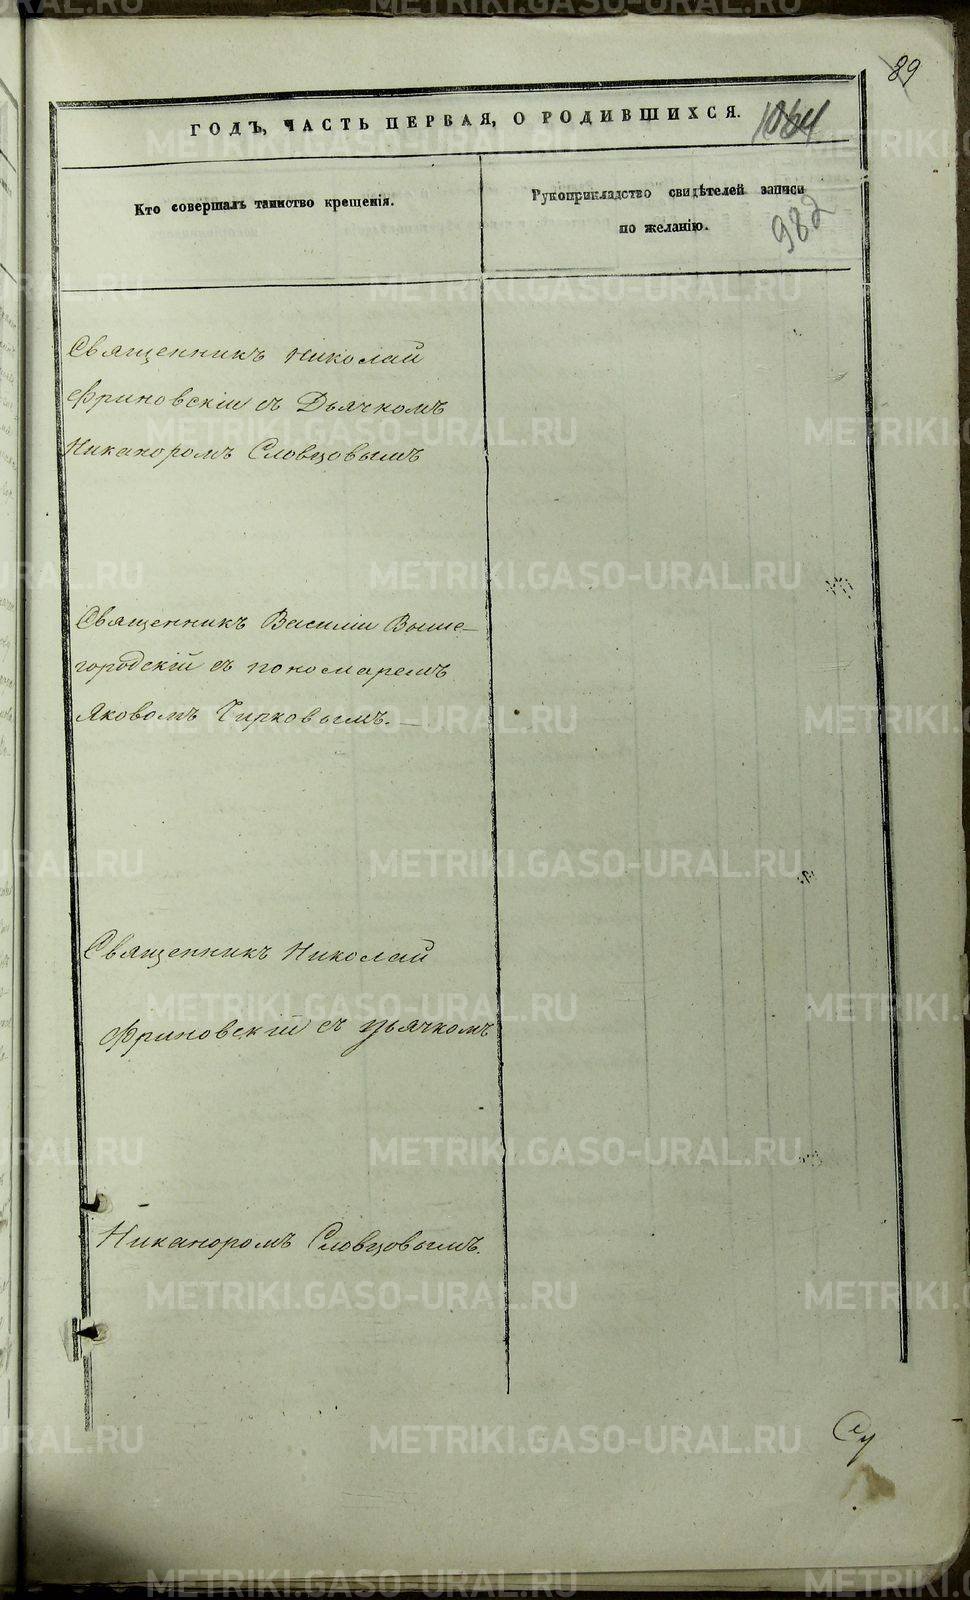 89
ГОДЪ, ЧАСТЬ ПЕРВАЯ, О РОДИВШИХСЯ.
1064
Кто совершалъ таинство крещенія.
Рукоприкладство свидѣтелей записи
по желанію.
982
Священникъ Николай
Фриновскій съ Дьячкомъ
Никаноромъ Словцовымъ
Священникъ Василій Выше-
городскій съ пономаремъ
Яковомъ Чирковымъ.
Священникъ Николай
Фриновскій съ дьячкомъ
Никаноромъ Словцовымъ.
METRIKI.GASO-URAL.RU